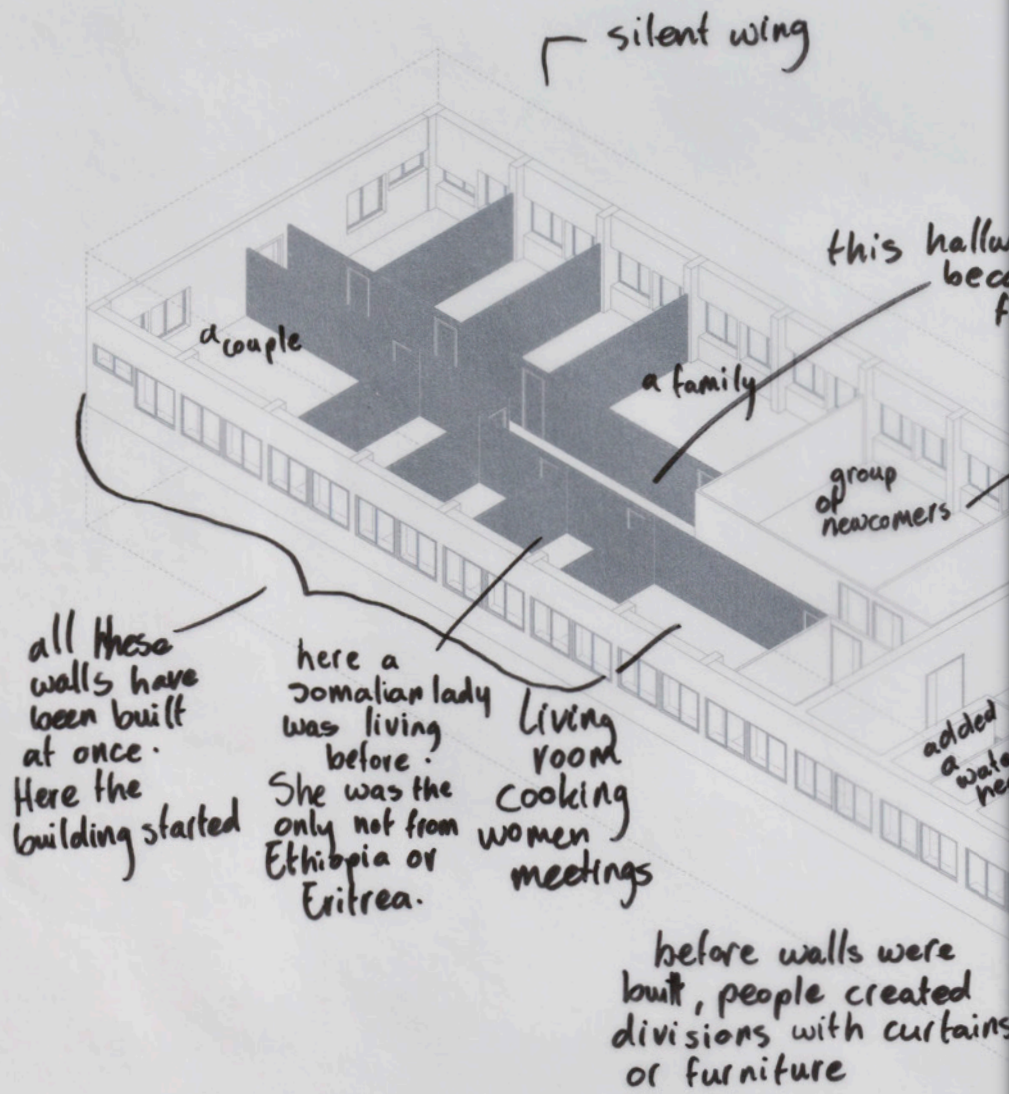 silent wing
this hallw
beco
f
a couple
a family
group
of
newcomers
all these
walls have
been built
at once.
Here the
building started
here a
somalian lady
was living
before.
She was the
only not from
Ethiopia or
Eritrea.
Living
room
cooking
women
meetings
added
a
wate
hea
before walls were
built, people created
divisions with curtains
or furniture